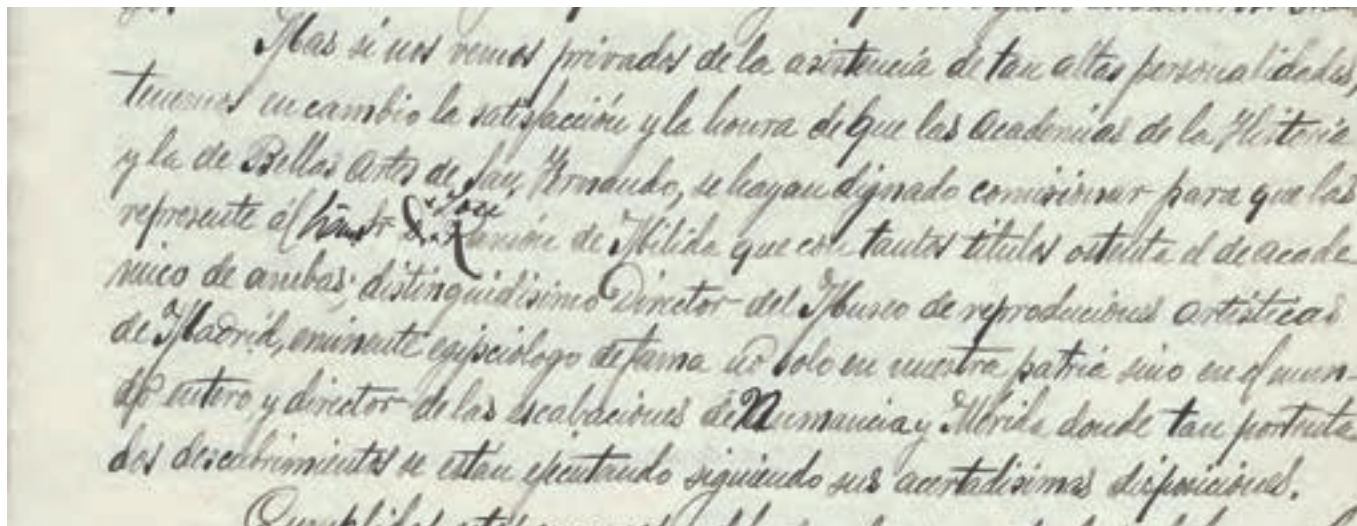 Mas si nos vemos privados de la asistencia de tan altas personalidades,
tenemos en cambio la satisfacción y la honra de que las Academias de la Historia
y la de Bellas Artes de San Fernando, se hayan dignado comisionar para que las
represente al José Ramón de Mélida que con tantos titulos ostenta el de acade
mico de ambas; distinguidisimo Director del Museo de reproduciones artísticas
de Madrid, eminente egipciologo de fama no solo en nuestra patria sino en el mun-
do entero, y director de las escabaciones de Numancia y Mérida donde tan portenta
dos descubrimientos se están ejecutando siguiendo sus acertadisimas disposiciones.